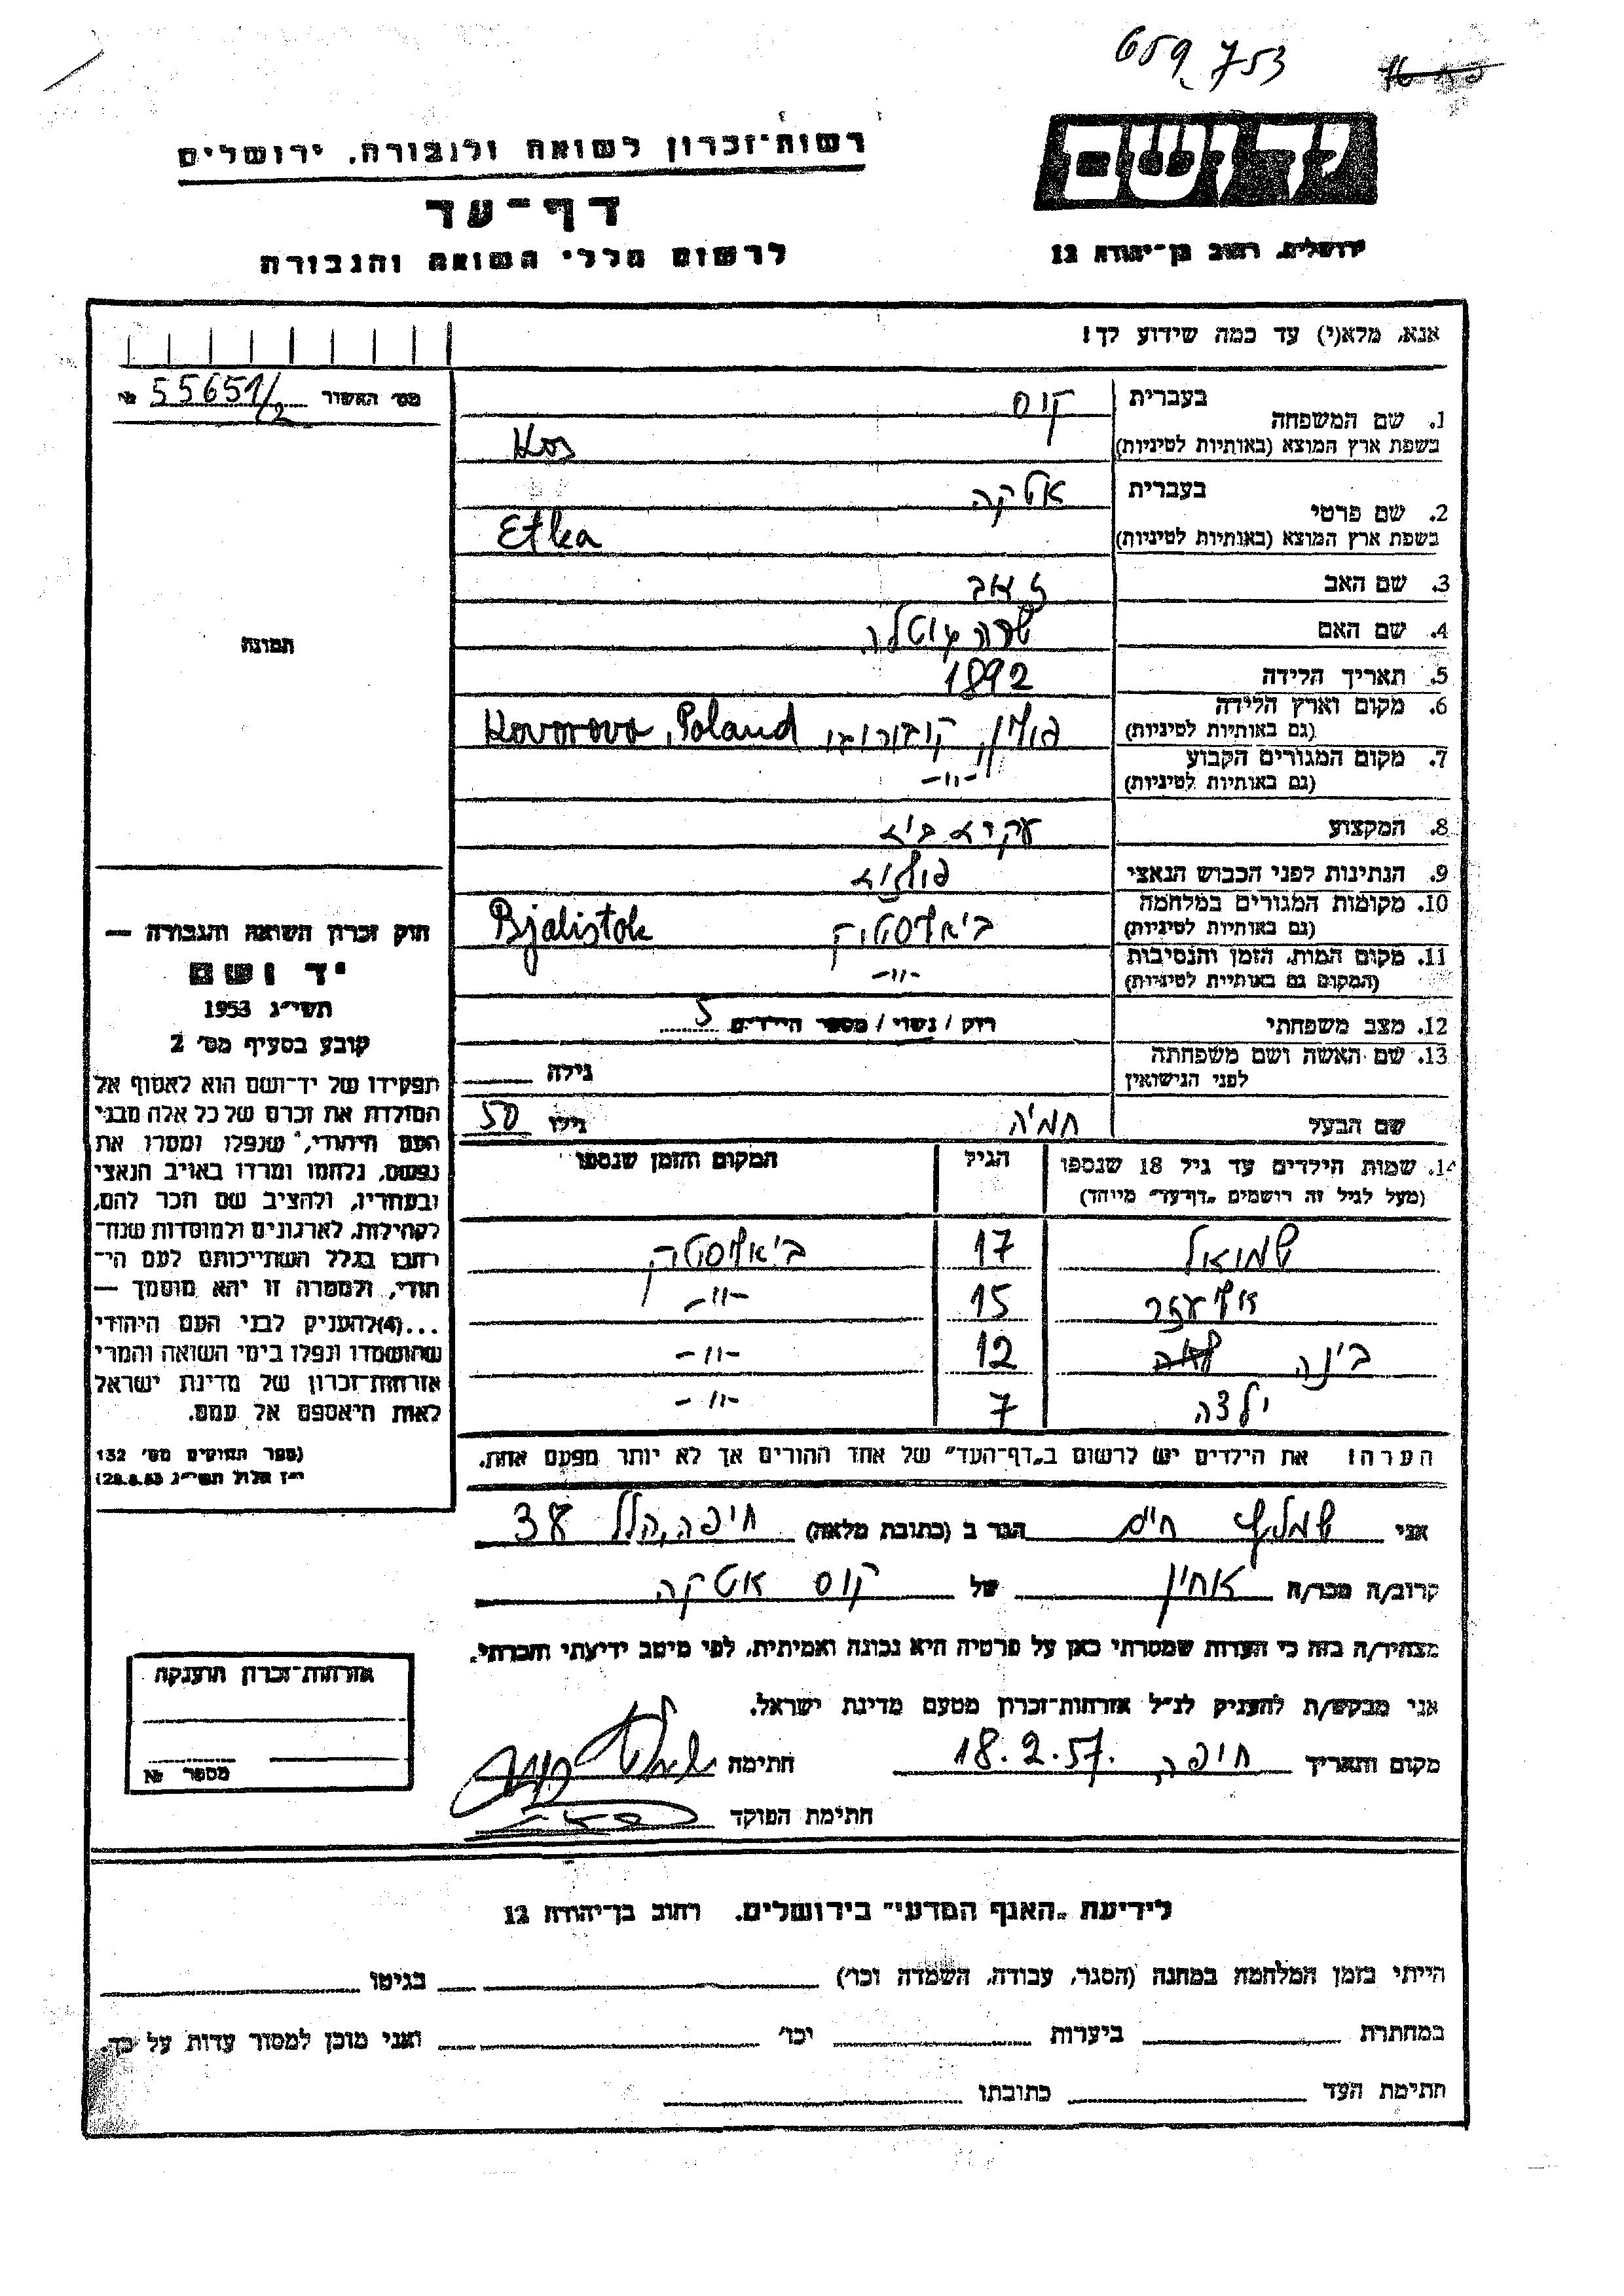 659,753
יד ושם
רשות־זכרון לשואה ולגבורה, ירושלים
דף־עד
לרשום חללי השואה והגבורה
ירושלים, רחוב בן־יהודה 12
אנא, מלא(י) עד כמה שידוע לך!
מס' האשור 55651/2 №
תמונה
1. שם המשפחה בעברית קוס
בשפת ארץ המוצא (באותיות לטיניות) Kos
2. שם פרטי בעברית אטקה
בשפת ארץ המוצא (באותיות לטיניות) Etka
3. שם האב זאב
4. שם האם שרה
5. תאריך הלידה 1892
6. מקום וארץ הלידה (גם באותיות לטיניות) פולין, קוברובו Kovorovo, Poland
7. מקום המגורים הקבוע (גם באותיות לטיניות) -"-
8. המקצוע עקרא ביא
9. הנתינות לפני הכבוש הנאצי פולניא
10. מקומות המגורים במלחמה (גם באותיות לטיניות) ביאליסטוק Bjalistok
11. מקום המות, הזמן והנסיבות (המקום גם באותיות לטיניות) -"-
12. מצב משפחתי רווק / נשוי / מספר הילדים 5
13. שם האשה ושם משפחתה לפני הנישואין גילה
שם הבעל נחמיה גילו 50
14. שמות הילדים עד גיל 18 שנספו (מעל לגיל זה רושמים „דף־עד" מיוחד) הגיל המקום והזמן שנספו
שמואל 17 ביאליסטוק
אליעזר 15 -"-
בינה 12 -"-
ילדה 7 -"-
הערה! את הילדים יש לרשום ב„דף־העד" של אחד ההורים אך לא יותר מפעם אחת.
חוק זכרון השואה והגבורה —
יד ושם
תשי"ג 1953
קובע בסעיף מס' 2
תפקידו של יד־ושם הוא לאסוף אל
המולדת את זכרם של כל אלה מבני
העם היהודי, שנפלו ומסרו את
נפשם, נלחמו ומרדו באויב הנאצי
ובעוזריו, ולהציב שם וזכר להם,
לקהילות, לארגונים ולמוסדות שנח־
רבו בגלל השתייכותם לעם הי־
הודי, ולמטרה זו יהא מוסמך —
...(4)להעניק לבני העם היהודי
שהושמדו ונפלו בימי השואה והמרי
אזרחות־זכרון של מדינת ישראל
לאות היאספם אל עמם.
(ספר החוקים מס' 132
י"ז אלול תשי"ג 28.8.53)
אני חיים הגר ב (כתובת מלאה) חיפה, הלל 38
קרוב/ה מכר/ה אחין של קוס אטקה
מצהיר/ה בזה כי העדות שמסרתי כאן על פרטיה היא נכונה ואמיתית, לפי מיטב ידיעתי והכרתי.
אני מבקש/ת להעניק לנ"ל אזרחות־זכרון מטעם מדינת ישראל.
מקום ותאריך חיפה, 18.2.57. חתימה
חתימת הפוקד
אזרחות־זכרון הוענקה
מספר №
לידיעת „האגף המדעי" בירושלים, רחוב בן־יהודה 12
הייתי בזמן המלחמה במחנה (הסגר, עבודה, השמדה וכו') בגיטו
במחתרת ביערות וכו' ואני מוכן למסור עדות על כך.
חתימת העד כתובתו